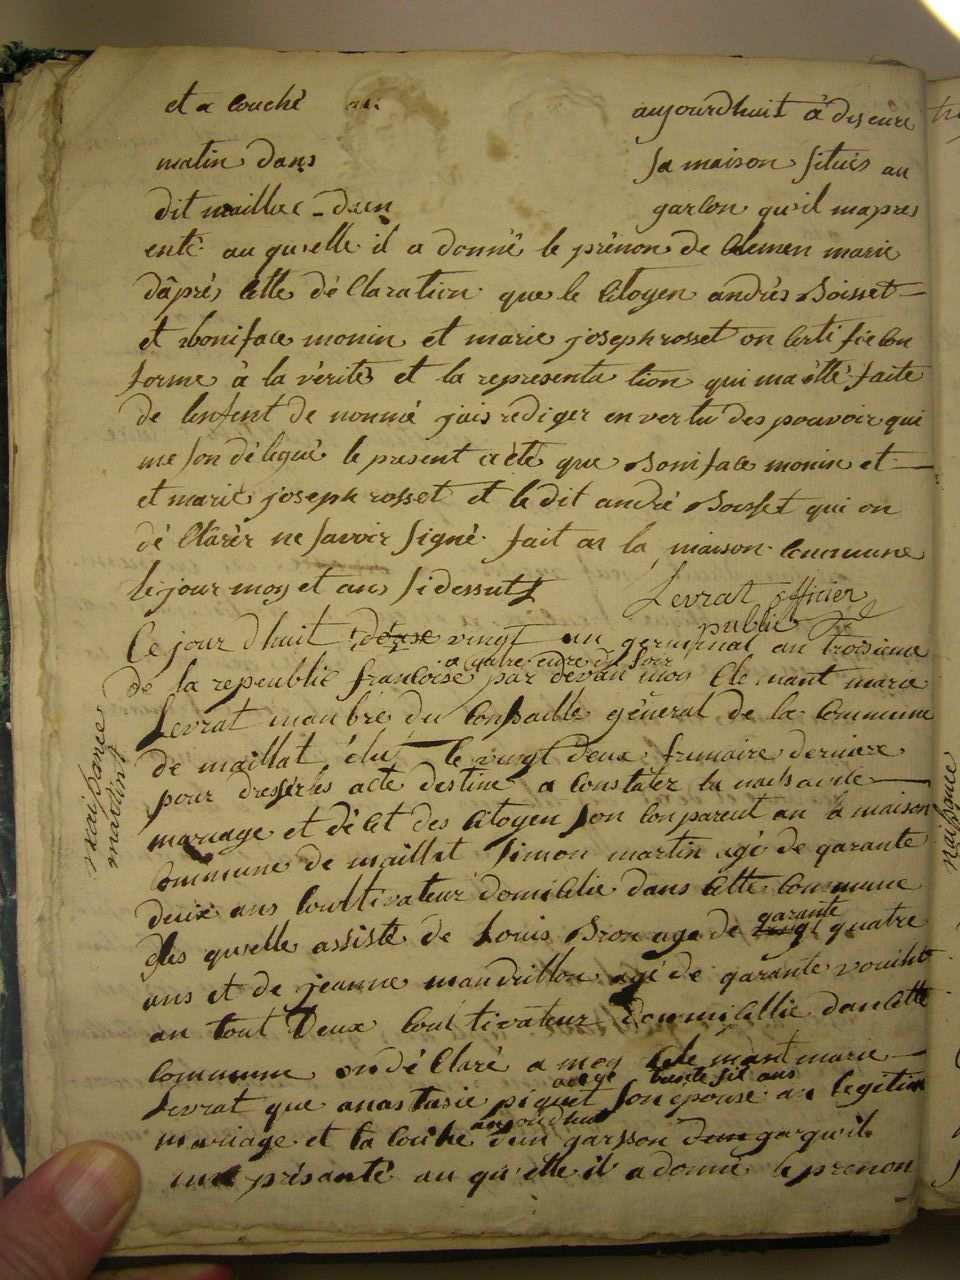 et a Couché au aujourdhuit à dix eure
matin dans sa maison situés au
dit maillac dun garson qu'il mapres
enté au quelle il a donné le prénon de Clemen marie
dâprés Cette dé Claration que le Citoyen andrés Boisset
et Boniface monin et marie joseph rosset on Certi fié Con
forme à la vérités et la représenta tion qui ma étté faite
de lenfent de nommé jais rédiger en vertu des pouvoir qui
me son délégué le present acte que Boniface monin et
et marie joseph rosset et le dit andré Boisset qui on
dé Clârér ne savoir signé fait an la maison commune
le jour moy et an si dessut Levrat officier
public
Ce jour dhuit vingt un germinal an troisieme
a quatre eure du soir
de la repeublic françoise par devan moy Clemant marie
Levrat manbre du Consaille général de la Commune
de maillat élu le vingt deux frimaire derniere
pour dresser les acte destine a Constatez la naissance
mariage et décet des Citoyen son Conparent an la maison
Commune de maillat Simon martin agé de garante
deux ans Coultivateur domicilié dans Cette Commune
les quelle assisté de Louis Bron age de garante quatre
ans et de jeanne mandrillon agé de garante vouiht
an tout deux Coultivateur domicillie dan Cette
Commune on dé Claré a moy Cle mant marie
aégé trante sit ans
Levrat que anastasie piquet son epouse an legitim
aujourdhuit
mariage et ta Couche dun garsson qu'il
ma présanté au qu'elle il a donné le prenon
naisance
martin
naisance